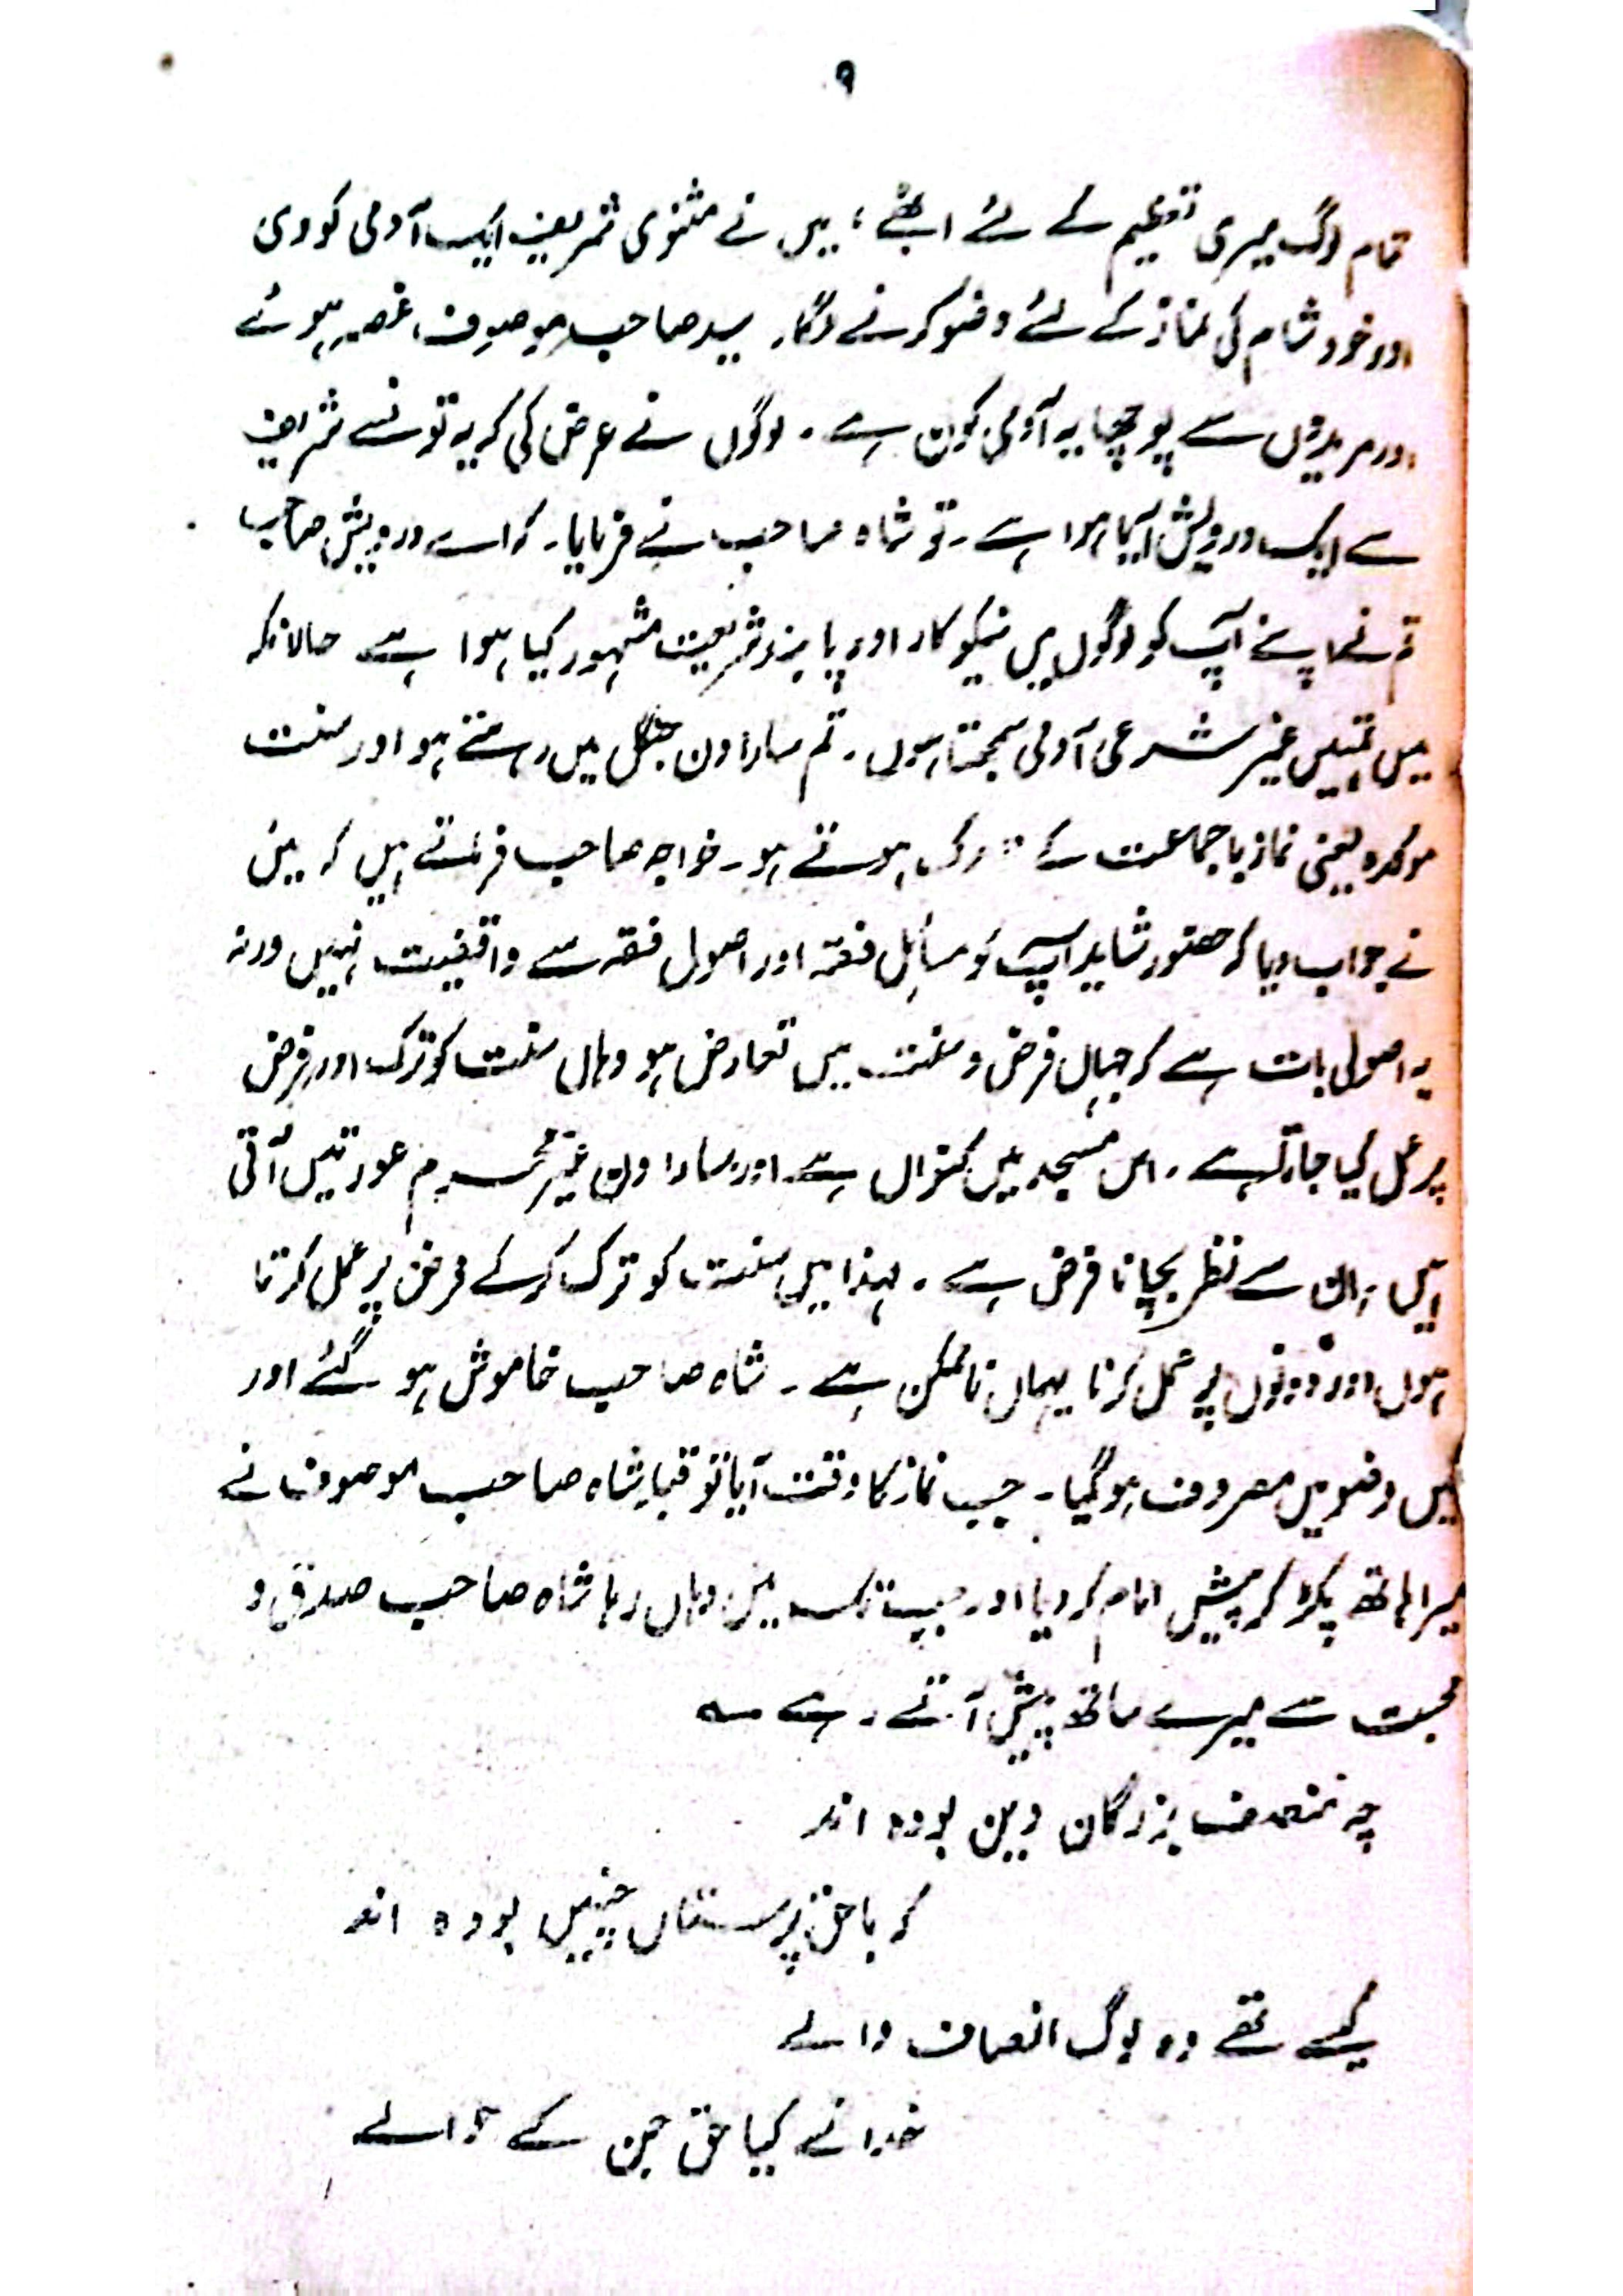 ۹
تمام لوگ میری تعظیم کے لئے اٹھے، میں نے مثنوی شریف ایک آدمی کو دی
اور خود شام کی نماز کے لئے وضو کرنے لگا۔ سید صاحب موصوف غصہ ہوئے
اور مریدوں سے پوچھا یہ آدمی کون ہے۔ لوگوں نے عرض کی کہ یہ تونسے شریف
سے ایک درویش آیا ہوا ہے۔ تو شاہ صاحب نے فرمایا۔ کہ اے درویش صاحب
تم نے اپنے آپ کو لوگوں میں نیکوکار اور پابند شریعت مشہور کیا ہوا ہے حالانکہ
میں تمہیں غیر شرعی آدمی سمجھتا ہوں۔ تم سارا دن جنگل میں رہتے ہو اور سنت
موکدہ یعنی نماز باجماعت کے تارک ہوتے ہو۔ خواجہ صاحب فرماتے ہیں کہ میں
نے جواب دیا کہ حضور شاید آپ کو مسائل فقہ اور اصول فقہ سے واقفیت نہیں ورنہ
یہ اصولی بات ہے کہ جہاں فرض و سنت میں تعارض ہو وہاں سنت کو ترک اور فرض
پر عمل کیا جاتا ہے۔ اس مسجد میں کنواں ہے اور سارا دن غیر محرم عورتیں آتی
ہیں، ان سے نظر بچانا فرض ہے۔ لہذا میں سنت کو ترک کر کے فرض پر عمل کرتا
ہوں اور دونوں پر عمل کرنا یہاں ناممکن ہے۔ شاہ صاحب خاموش ہو گئے اور
میں وضو میں مصروف ہو گیا۔ جب نماز کا وقت آیا تو قبلہ شاہ صاحب موصوف نے
میرا ہاتھ پکڑ کر پیش امام کر دیا اور جب تک میں وہاں رہا شاہ صاحب صدق و
محبت سے میرے ساتھ پیش آتے رہے ؎
چہ منصف بزرگان دین بودہ اند
کہ با حق پرستاں چنیں بودہ اند
کیسے تھے وہ لوگ انصاف والے
خدا نے کیا حق جن کے حوالے